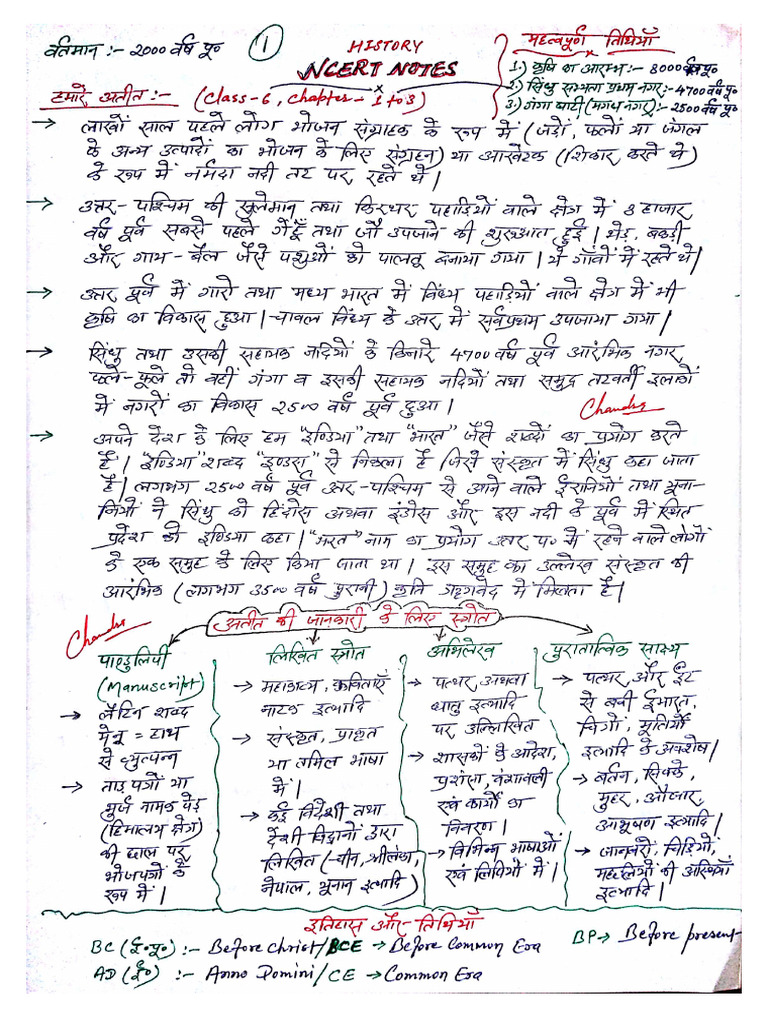 वर्तमान :- 2000 वर्ष पू०
1
HISTORY
NCERT NOTES
महत्वपूर्ण तिथियाँ
1.) कृषि का आरम्भ :- 8000 वर्ष पू०
2.) सिंधु सभ्यता प्रथम नगर :- 4700 वर्ष पू०
3.) गंगा घाटी (मगध नगर) :- 2500 वर्ष पू०
हमारे अतीत :- (Class-6, Chapter-1 to 3)
→ लाखों साल पहले लोग भोजन संग्राहक के रूप में (जड़ों, फलों या जंगल
के अन्य उत्पादों का भोजन के लिए संग्रहन) या आखेटक (शिकार करते थे)
के रूप में नर्मदा नदी तट पर रहते थे।
→ उत्तर-पश्चिम की सुलेमान तथा किरथर पहाड़ियों वाले क्षेत्र में 8 हजार
वर्ष पूर्व सबसे पहले गेहूँ तथा जौ उपजाने की शुरुआत हुई। भेड़, बकरी
और गाय-बैल जैसे पशुओं को पालतू बनाया गया। ये गाँवों में रहते थे।
→ उत्तर पूर्व में गारो तथा मध्य भारत में विंध्य पहाड़ियों वाले क्षेत्र में भी
कृषि का विकास हुआ। चावल विंध्य के उत्तर में सर्वप्रथम उपजाया गया।
→ सिंधु तथा उसकी सहायक नदियों के किनारे 4700 वर्ष पूर्व आरंभिक नगर
फले-फूले तो वहीं गंगा व इसकी सहायक नदियों तथा समुद्र तटवर्ती इलाकों
में नगरों का विकास 2500 वर्ष पूर्व हुआ।
Chandra
→ अपने देश के लिए हम "इण्डिया" तथा "भारत" जैसे शब्दों का प्रयोग करते
हैं। "इण्डिया" शब्द "इण्डस" से निकला है जिसे संस्कृत में सिंधु कहा जाता
है। लगभग 2500 वर्ष पूर्व उत्तर-पश्चिम से आने वाले ईरानियों तथा यूना-
नियों ने सिंधु को हिंदोस अथवा इंडोस और इस नदी के पूर्व में स्थित
प्रदेश को इण्डिया कहा। "भरत" नाम का प्रयोग उत्तर प० में रहने वाले लोगों
के एक समूह के लिए किया जाता था। इस समूह का उल्लेख संस्कृत की
आरंभिक (लगभग 3500 वर्ष पुरानी) कृति ऋग्वेद में मिलता है।
Chandra
अतीत की जानकारी के लिए स्त्रोत
पाण्डुलिपी
(Manuscript)
→ लैटिन शब्द
मेनू = हाथ
से व्युत्पन्न
→ ताड़ पत्रों या
भुर्ज नामक पेड़
(हिमालय क्षेत्र)
की छाल पर
भोजपत्रों के
रूप में।
लिखित स्त्रोत
→ महाकाव्य, कविताएँ
नाटक इत्यादि
→ संस्कृत, प्राकृत
या तमिल भाषा
में।
→ कई विदेशी तथा
देशी विद्वानों द्वारा
लिखित (-चीन, श्रीलंका,
नेपाल, यूनान इत्यादि)
अभिलेख
→ पत्थर, अथवा
धातु इत्यादि
पर, उल्लिखित
→ शासकों के आदेश,
प्रशंसा, वंशावली
एवं कार्यों का
विवरण।
→ विभिन्न भाषाओं
एवं लिपियों में।
पुरातात्विक साक्ष्य
→ पत्थर, और ईंट
से बनी ईमारत,
चित्रों, मूर्तियों
इत्यादि के अवशेष।
→ बर्तन, सिक्के,
मुहर, औजार,
आभूषण इत्यादि।
→ जानवरों, चिड़ियों,
मछलियों की अस्थियाँ
इत्यादि।
इतिहास और तिथियाँ
BC (ई०पू०) :- Before Christ/BCE → Before Common Era
BP → Before present
AD (ई०) :- Anno Domini/CE → Common Era